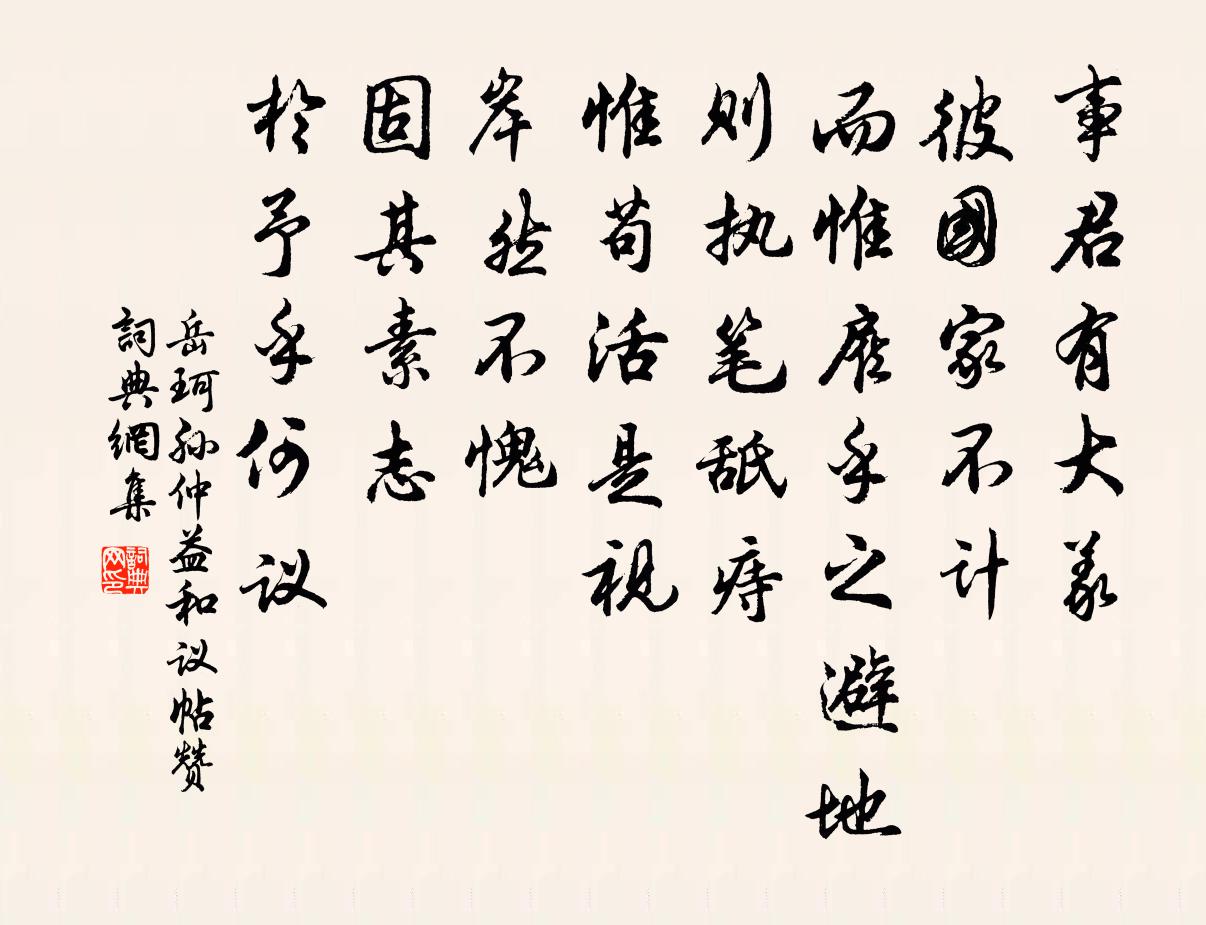 事君有大义
彼國家不计
而惟䧹乎之避地
则执笔舐痔
惟苟活是视
岸然不愧
固其素志
於予乎何议
岳珂孙仲益和议帖赞
詞典網集
詞典网印